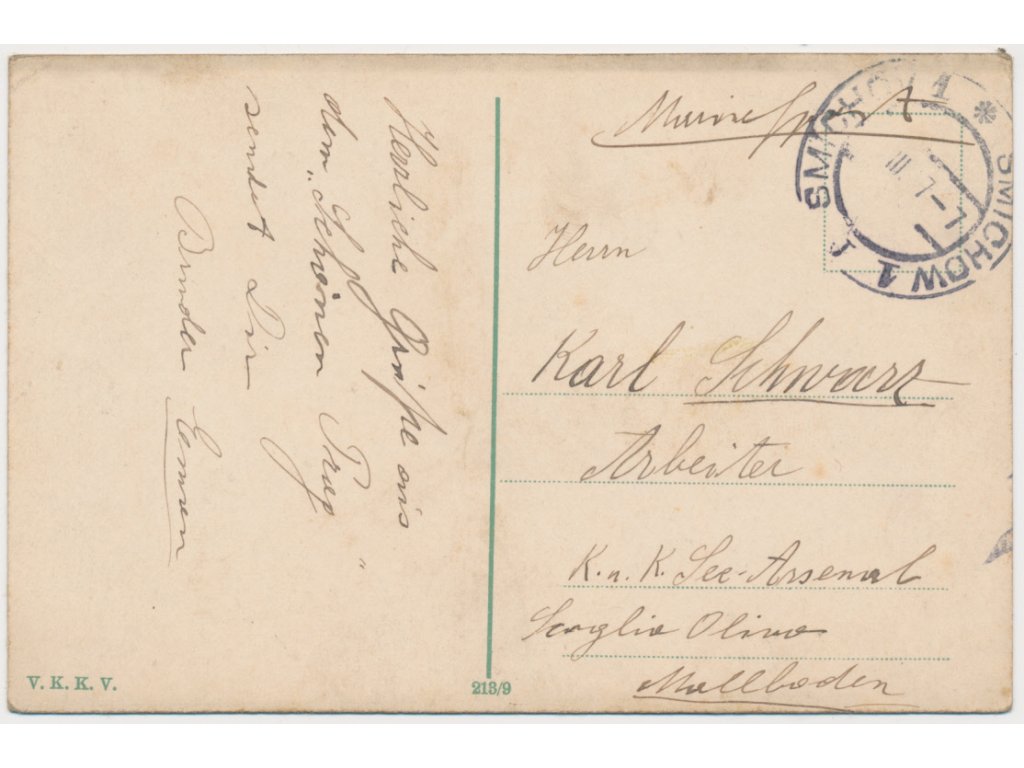 Herzliche Grüße aus
dem „Schönen Prag“
sendet Dir
Bruder
Herrn
Karl Schwarz
Arbeiter
K. u. K. See-Arsenal
Scoglio Olivo
SMICHOV 1 * SMICHOW 1
III 7-7
V. K. K. V.
213/9